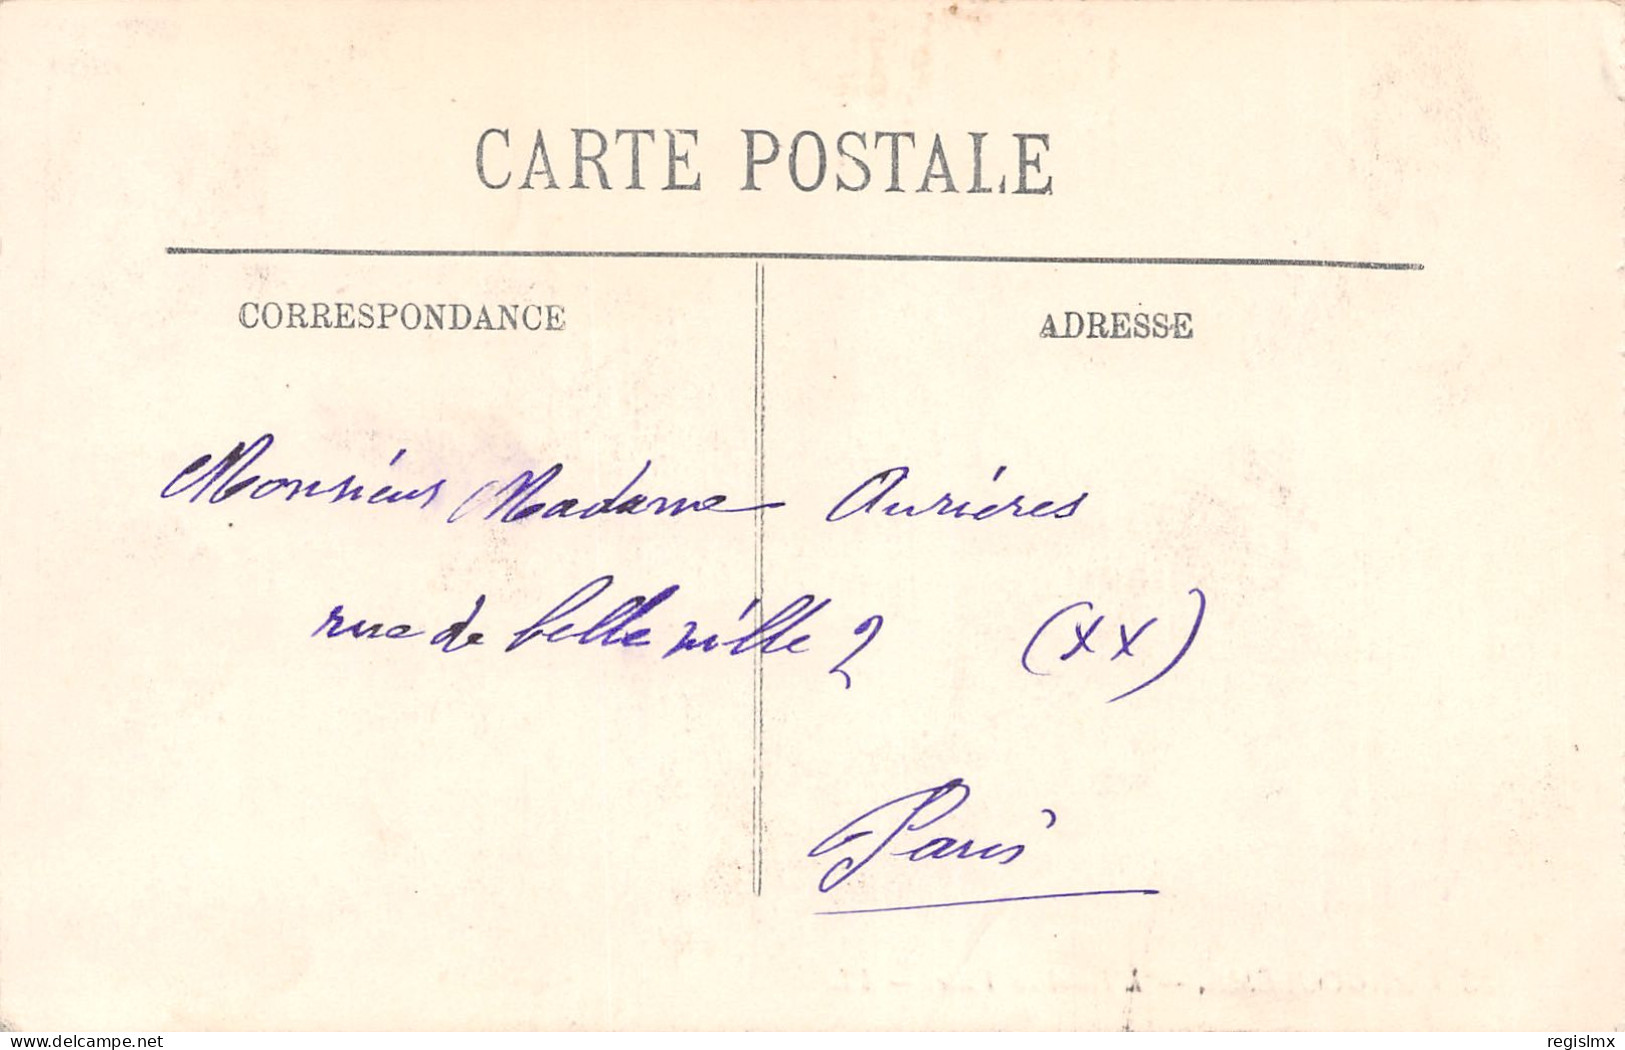 CARTE POSTALE
CORRESPONDANCE
ADRESSE
Monsieur Madame Aurières
rue de belleville 2 (XX)
Paris
delcampe.net
regislmx